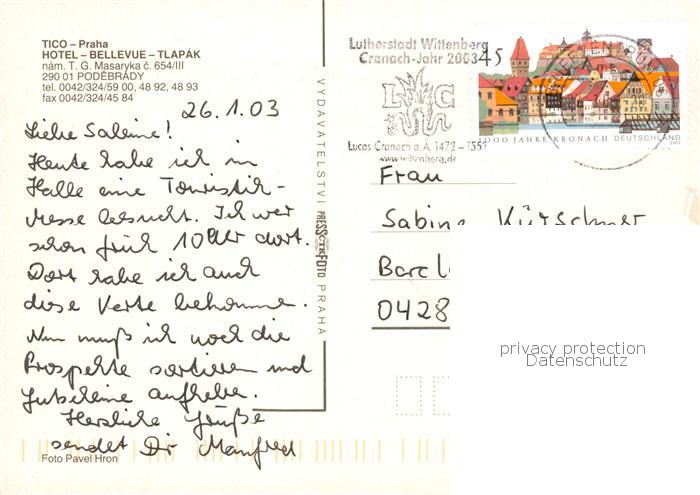 TICO – Praha
HOTEL – BELLEVUE – TLAPÁK
nám. T. G. Masaryka č. 654/III
290 01 PODĚBRADY
tel. 0042/324/59 00, 48 92, 48 93
fax 0042/324/45 84
26.1.03
Liebe Sabine!
Heute habe ich in
Halle eine Touristik-
Messe besucht. Ich war
schon früh 10 Uhr dort.
Dort habe ich auch
diese Karte bekommen.
Nun muß ich noch die
Prospekte sortieren und
Gutscheine aufheben.
Herzliche Grüße
sendet Dir Manfred
Foto Pavel Hron
VYDAVATELSTVÍ PRESSFOTO PRAHA
Lutherstadt Wittenberg
Cranach-Jahr 2003
L C
Lucas Cranach d. Ä. 1472 – 1553
www.wittenberg.de
45
1000 JAHRE KRONACH DEUTSCHLAND
2003
Frau
Sabine
Barcl
0428
privacy protection
Datenschutz